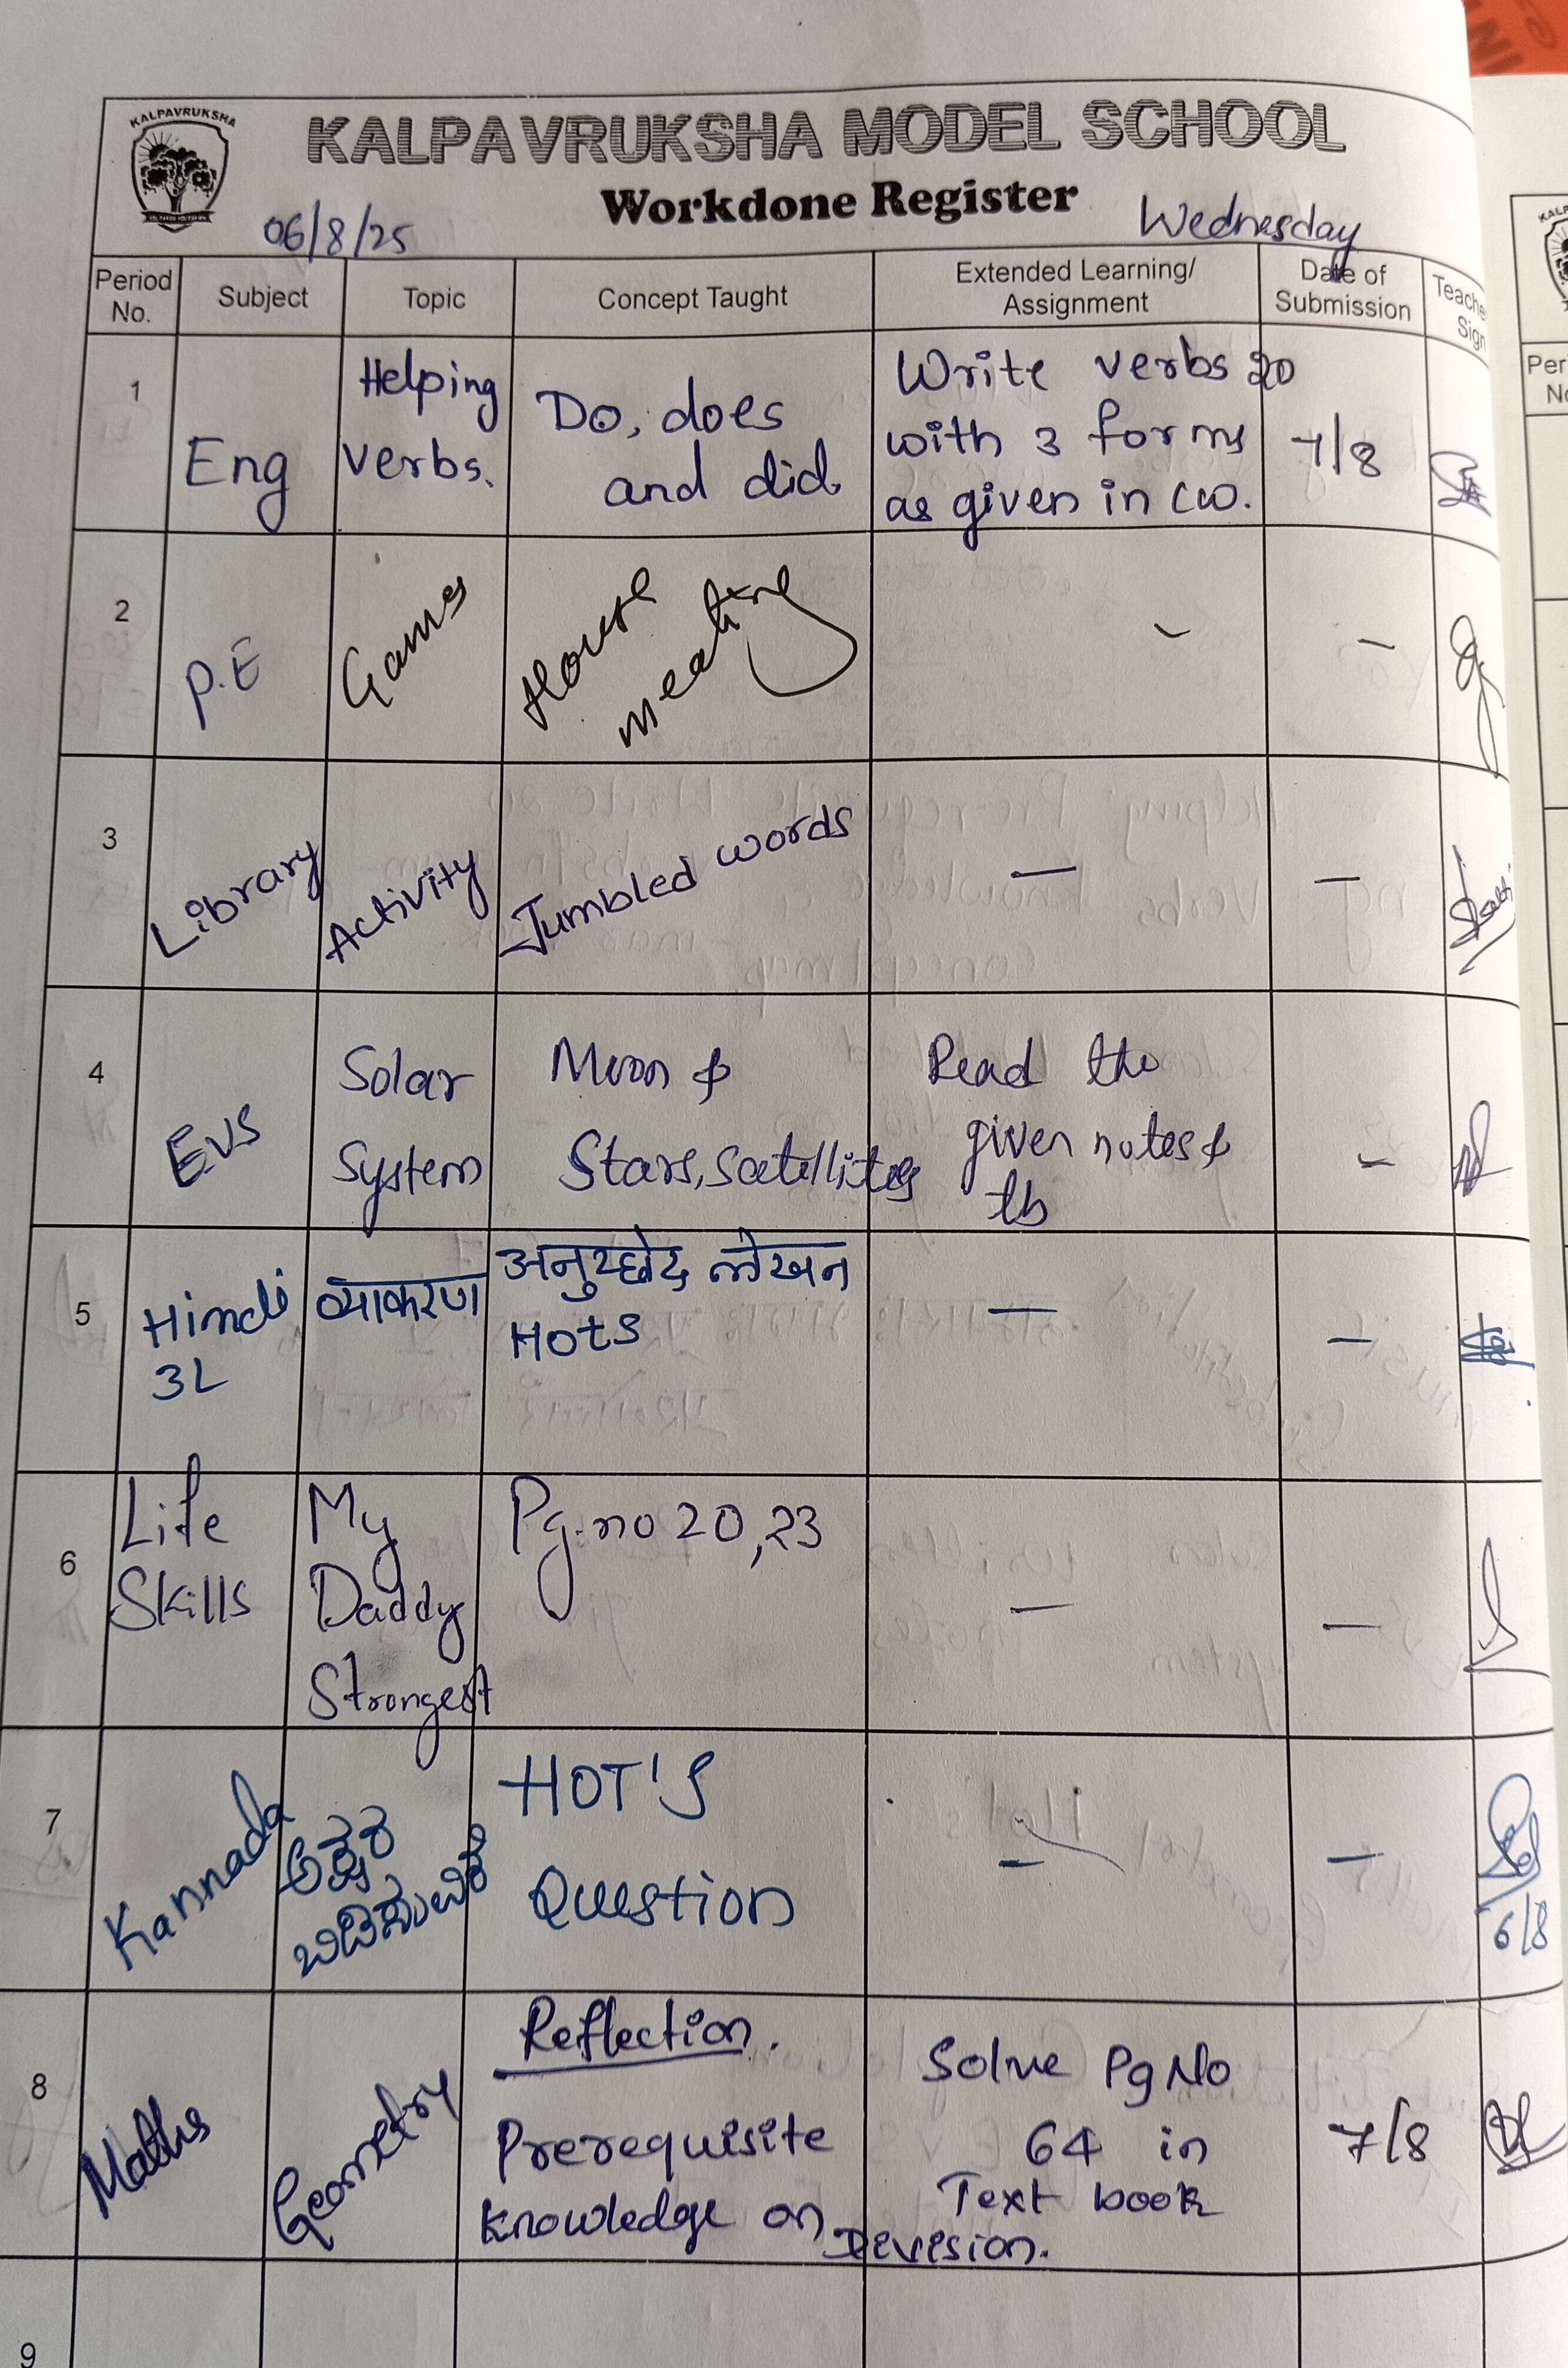 KALPAVRUKSHA
KALPAVRUKSHA MODEL SCHOOL
Workdone Register
06/8/25
Wednesday
Period No. Subject Topic Concept Taught Extended Learning/ Assignment Date of Submission Sign
1 Eng Helping verbs. Do, does and did Write verbs 20 with 3 forms as given in CW. 7/8
2 P.E Games House meeting - -
3 Library Activity Jumbled words - -
4 EVS Solar System Moon & Stars, Satellites Read the given notes & tb -
5 Hindi 3L व्याकरण अनुच्छेद लेखन HOTS - -
6 Life Skills My Daddy Strongest Pg.no 20,23 - -
7 Kannada ಅಕ್ಷರ ಬಿಡಿಸುವಿಕೆ HOT'S Question - - 6/8
8 Maths Geometry Reflection. Prerequisite knowledge on Division. Solve Pg No 64 in Text book 7/8
9